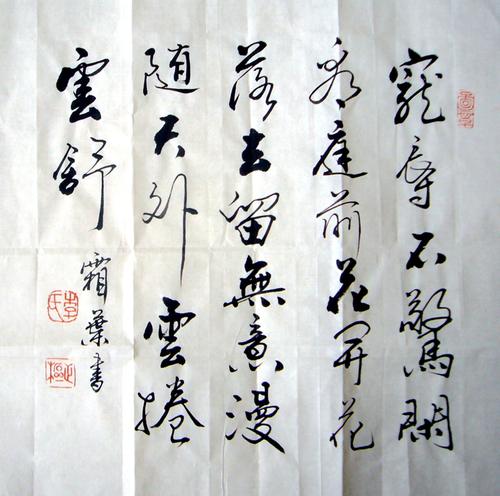 寵辱不驚閑
看庭前花開花
落去留無意漫
隨天外雲捲
雲舒
霜葉書
李氏